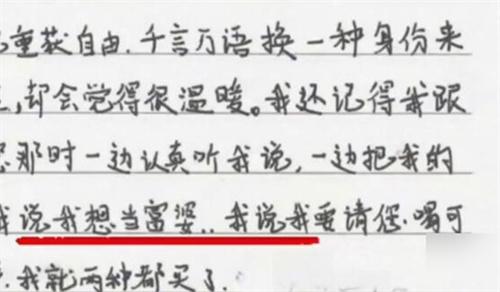 重获自由.千言万语换一种身份来
,却会觉得很温暖。我还记得我跟
那时一边认真听我说,一边把我的
我说我想当富婆..我说我要请您.喝可
.我就两种都买了.